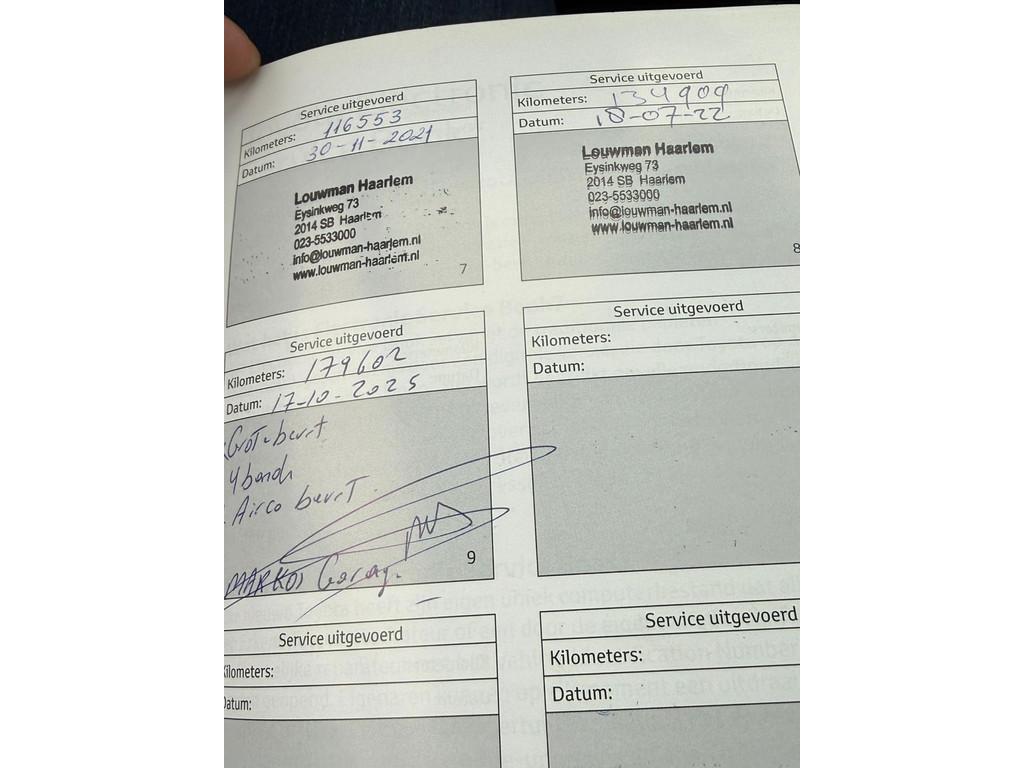 Service uitgevoerd
Kilometers: 116553
Datum: 30-11-2021
Louwman Haarlem
Eysinkweg 73
2014 SB Haarlem
023-5533000
info@louwman-haarlem.nl
www.louwman-haarlem.nl
7
Service uitgevoerd
Kilometers: 134909
Datum: 18-07-22
Louwman Haarlem
Eysinkweg 73
2014 SB Haarlem
023-5533000
info@louwman-haarlem.nl
www.louwman-haarlem.nl
8
Service uitgevoerd
Kilometers: 179602
Datum: 17-10-2025
Airco
9
Service uitgevoerd
Kilometers:
Datum:
Service uitgevoerd
Kilometers:
Datum:
Service uitgevoerd
Kilometers:
Datum: